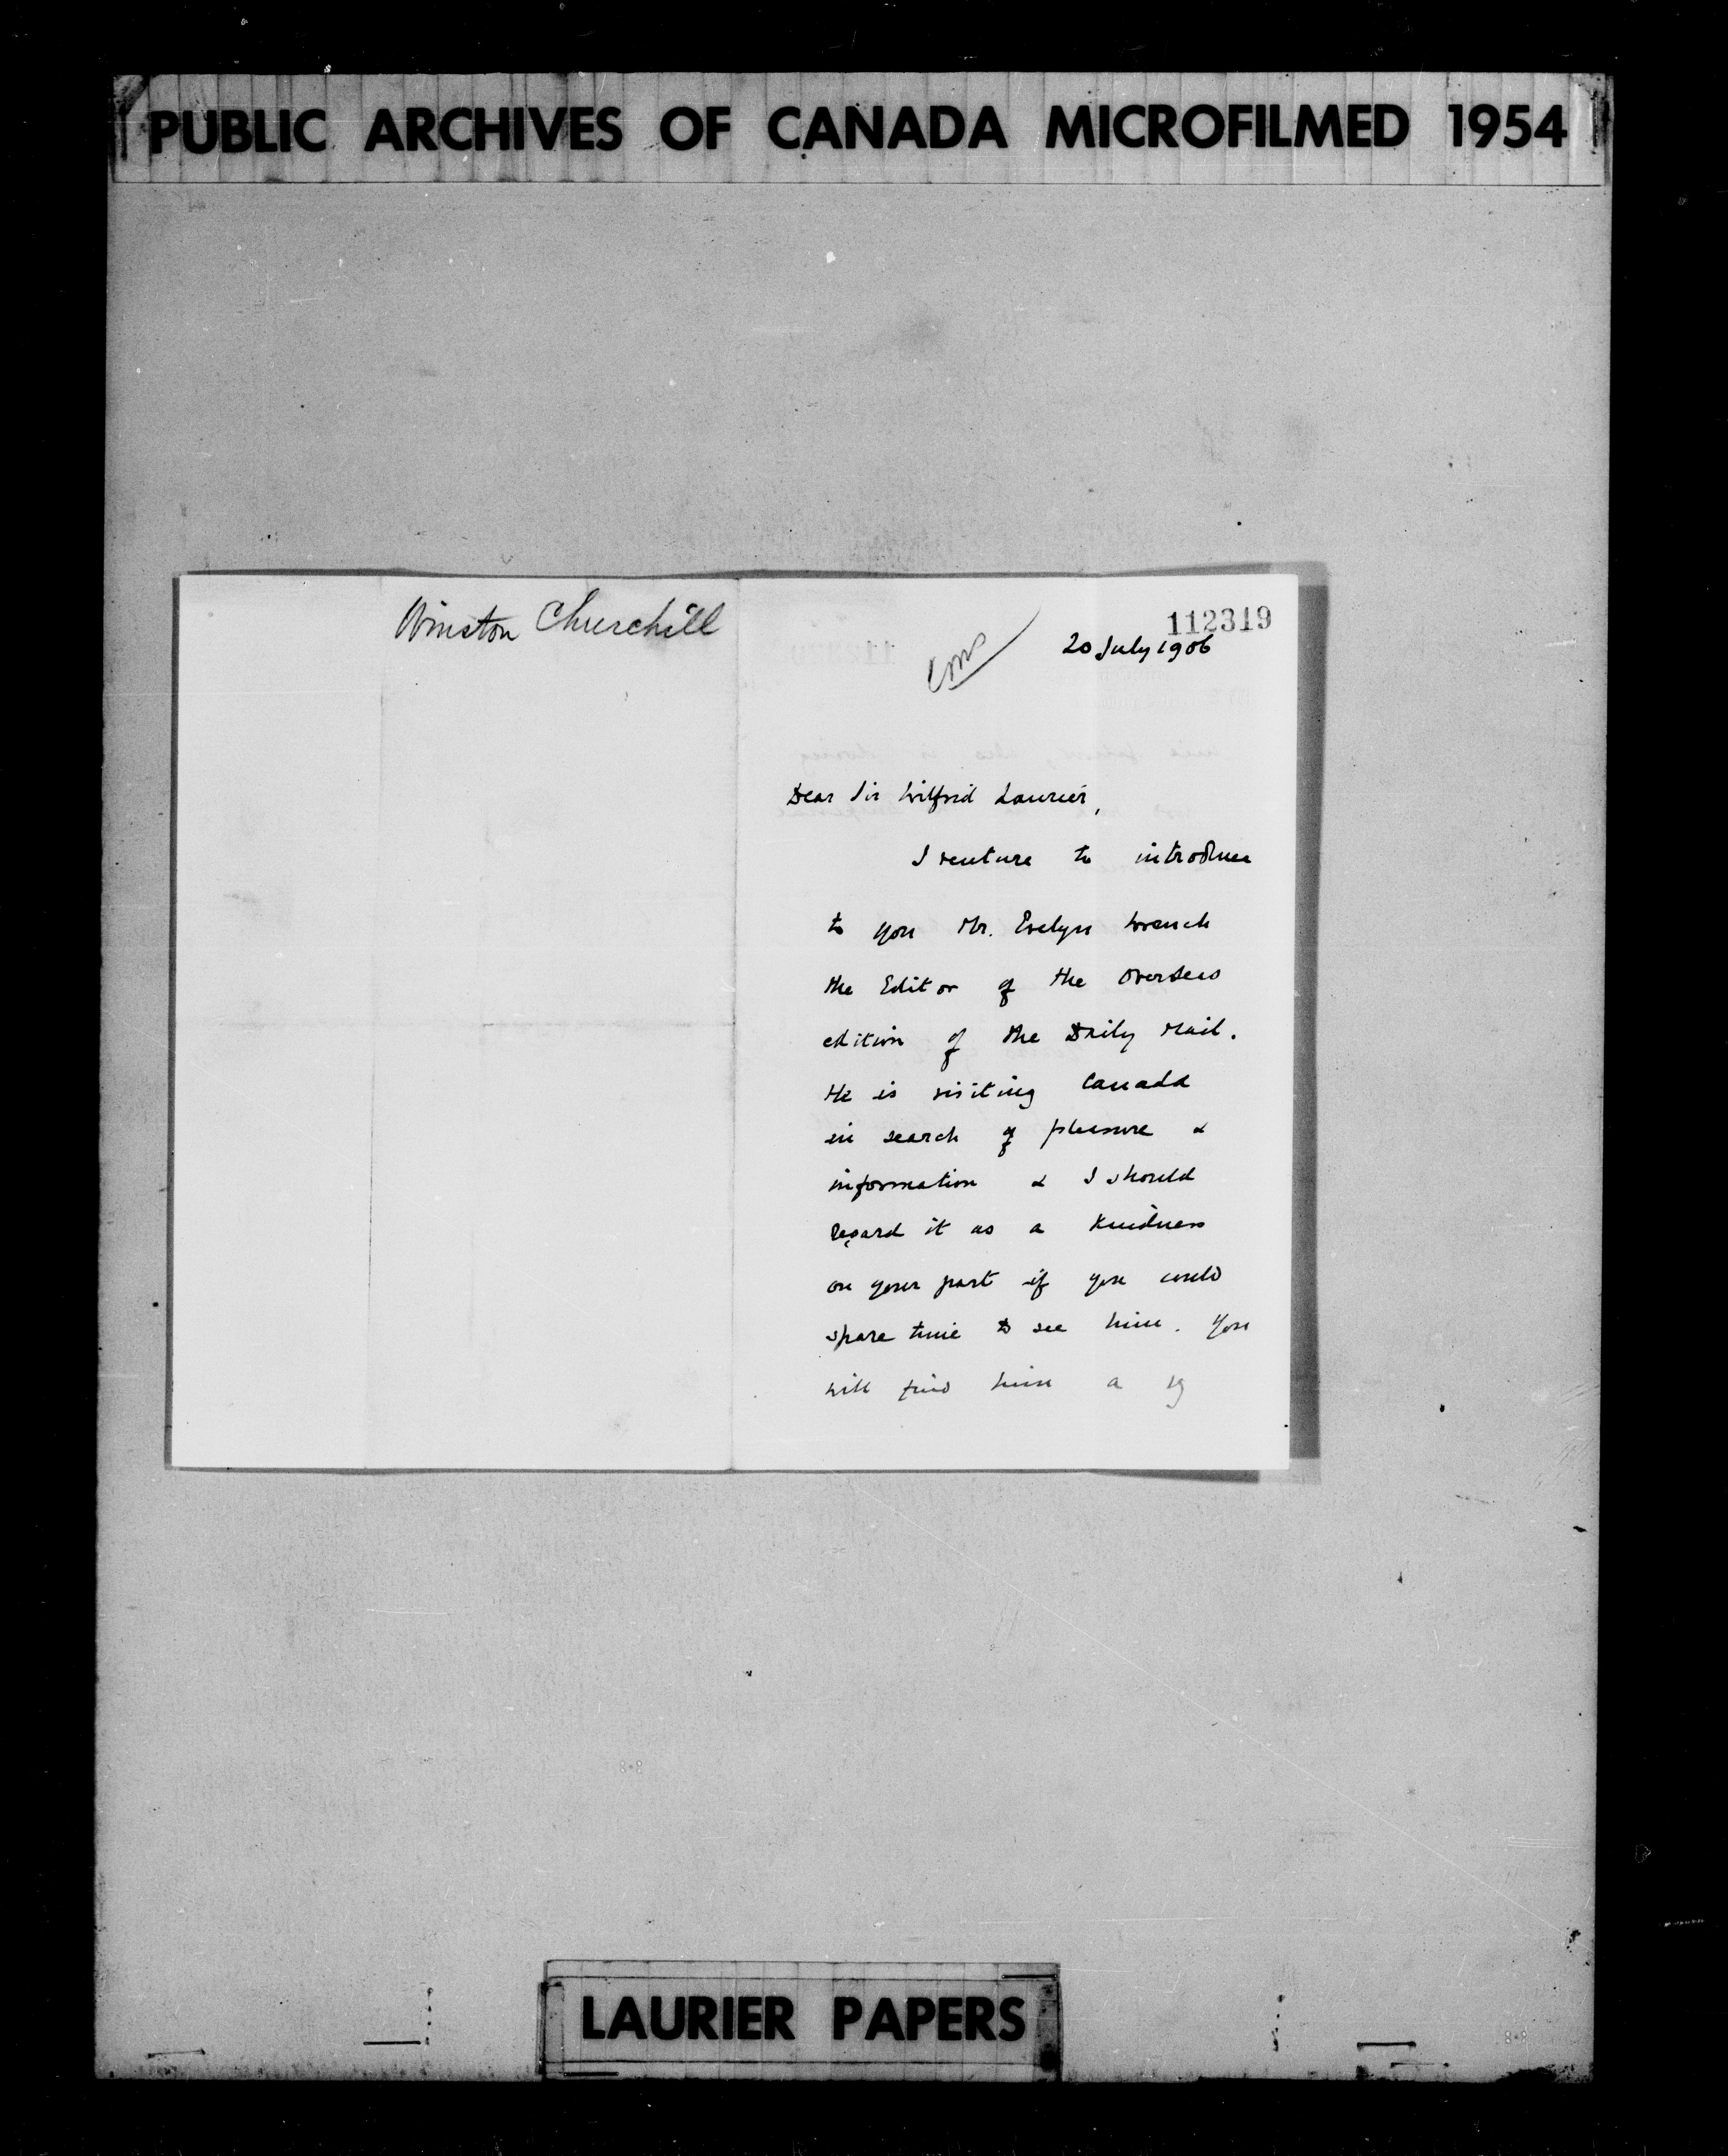 PUBLIC ARCHIVES OF CANADA MICROFILMED 1954
Winston Churchill
112319
20 July 1906
Dear Sir Wilfrid Laurier,
I venture to introduce
to you Mr. Evelyn Wrench
the Editor of the Overseas
edition of the Daily Mail.
He is visiting Canada
in search of pleasure &
information & I should
regard it as a kindness
on your part if you could
spare time to see him. You
will find him a
LAURIER PAPERS